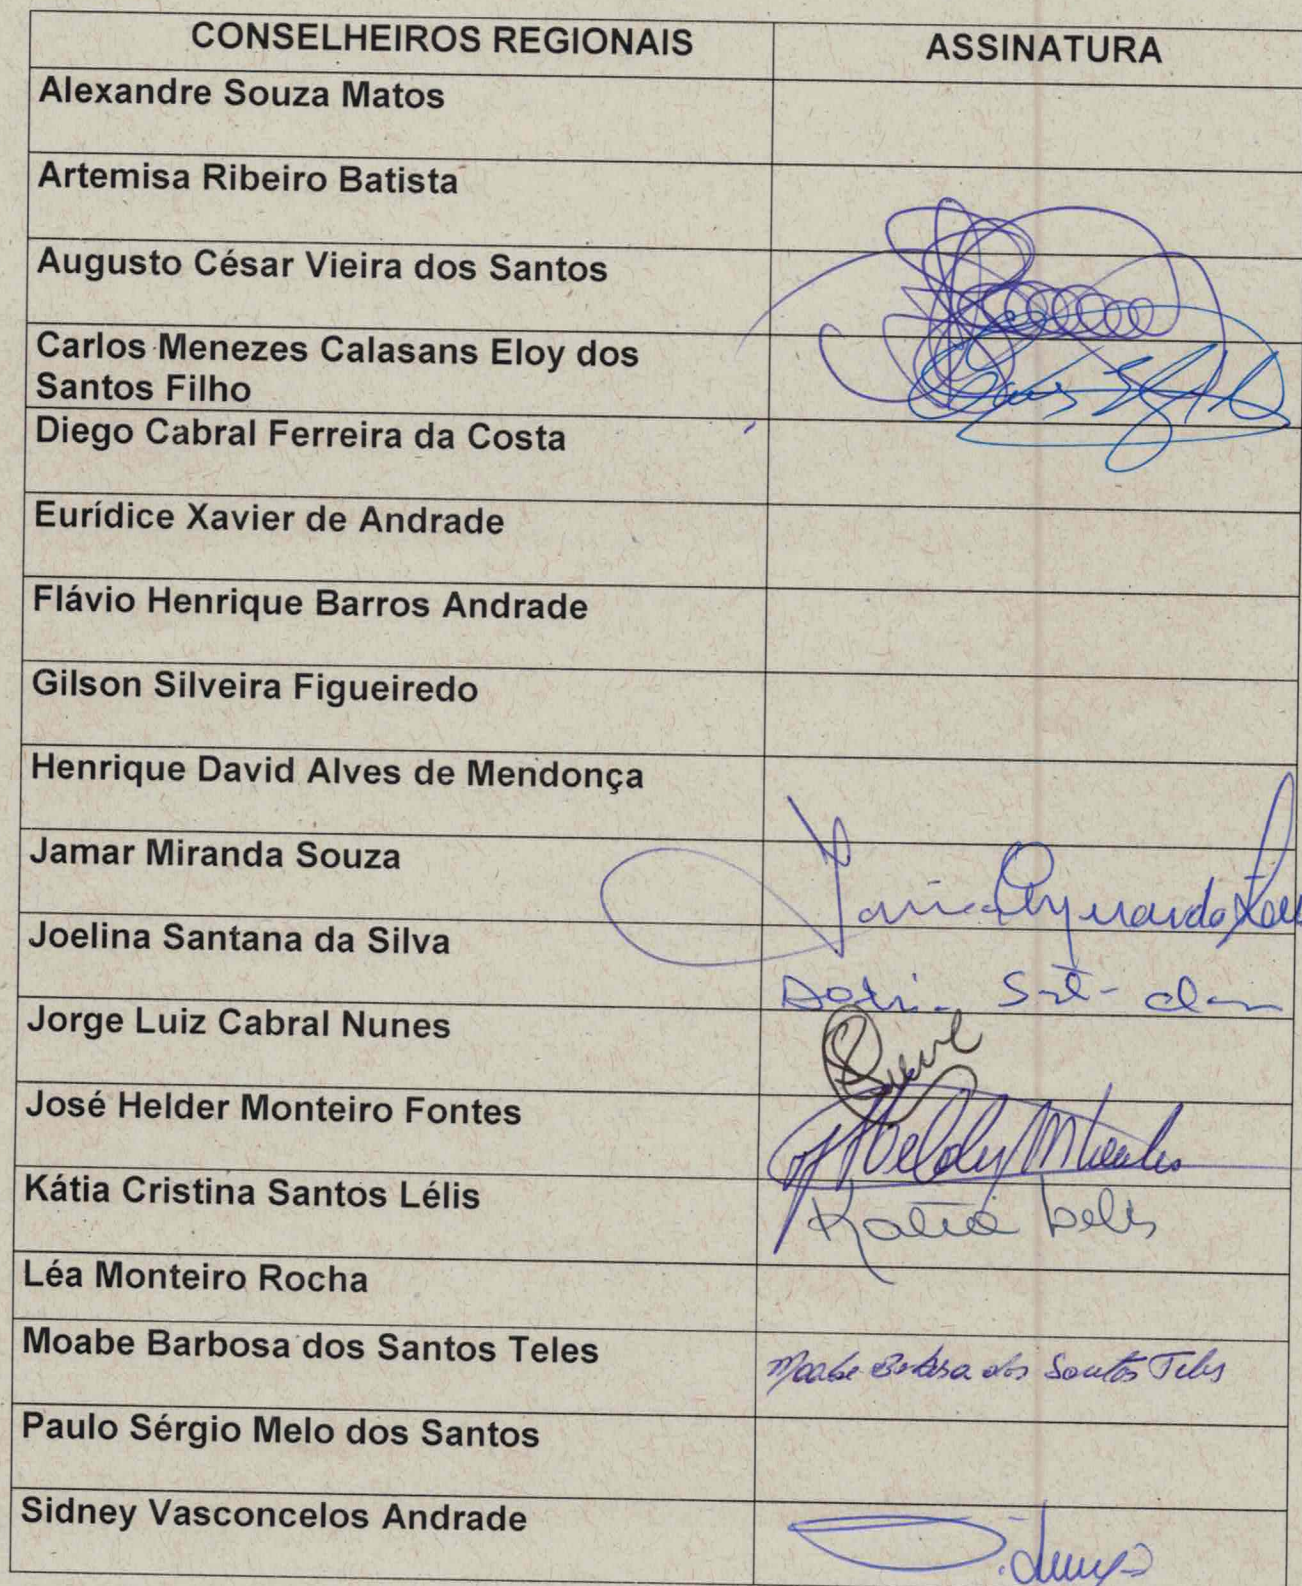 CONSELHEIROS REGIONAIS ASSINATURA
Alexandre Souza Matos
Artemisa Ribeiro Batista
Augusto César Vieira dos Santos
Carlos Menezes Calasans Eloy dos
Santos Filho
Diego Cabral Ferreira da Costa
Eurídice Xavier de Andrade
Flávio Henrique Barros Andrade
Gilson Silveira Figueiredo
Henrique David Alves de Mendonça
Jamar Miranda Souza
Joelina Santana da Silva
Jorge Luiz Cabral Nunes
José Helder Monteiro Fontes
Kátia Cristina Santos Lélis Katia Lelis
Léa Monteiro Rocha
Moabe Barbosa dos Santos Teles Moabe Barbosa dos Santos Teles
Paulo Sérgio Melo dos Santos
Sidney Vasconcelos Andrade